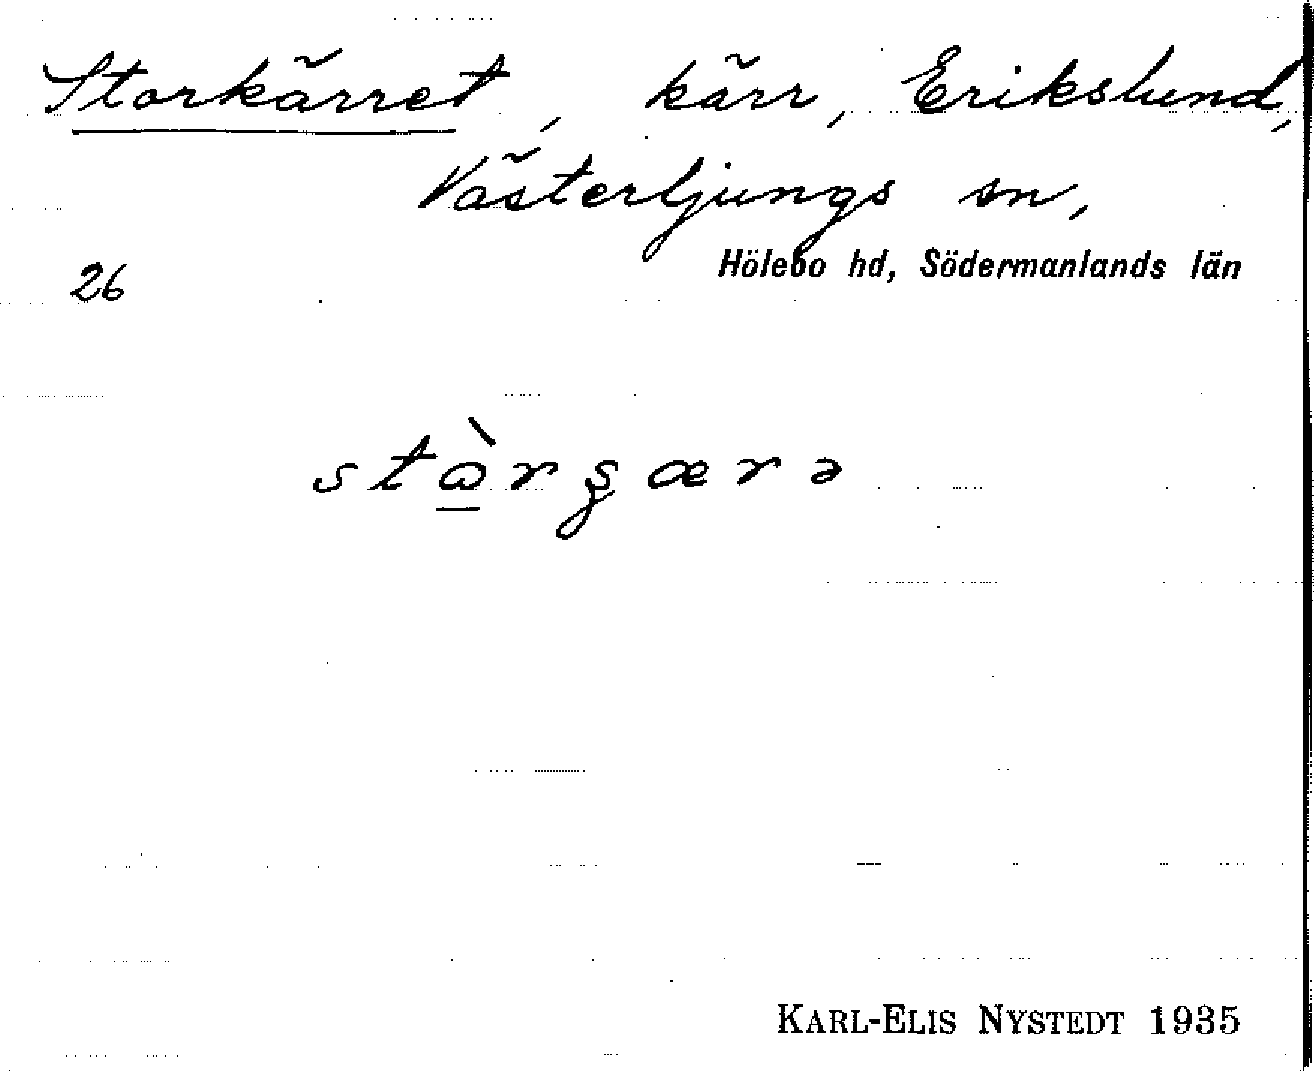 Storkärret, kärr, Erikslund,
Västerljungs sn,
26 Hölebo hd, Södermanlands län
KARL-ELIS NYSTEDT 1935